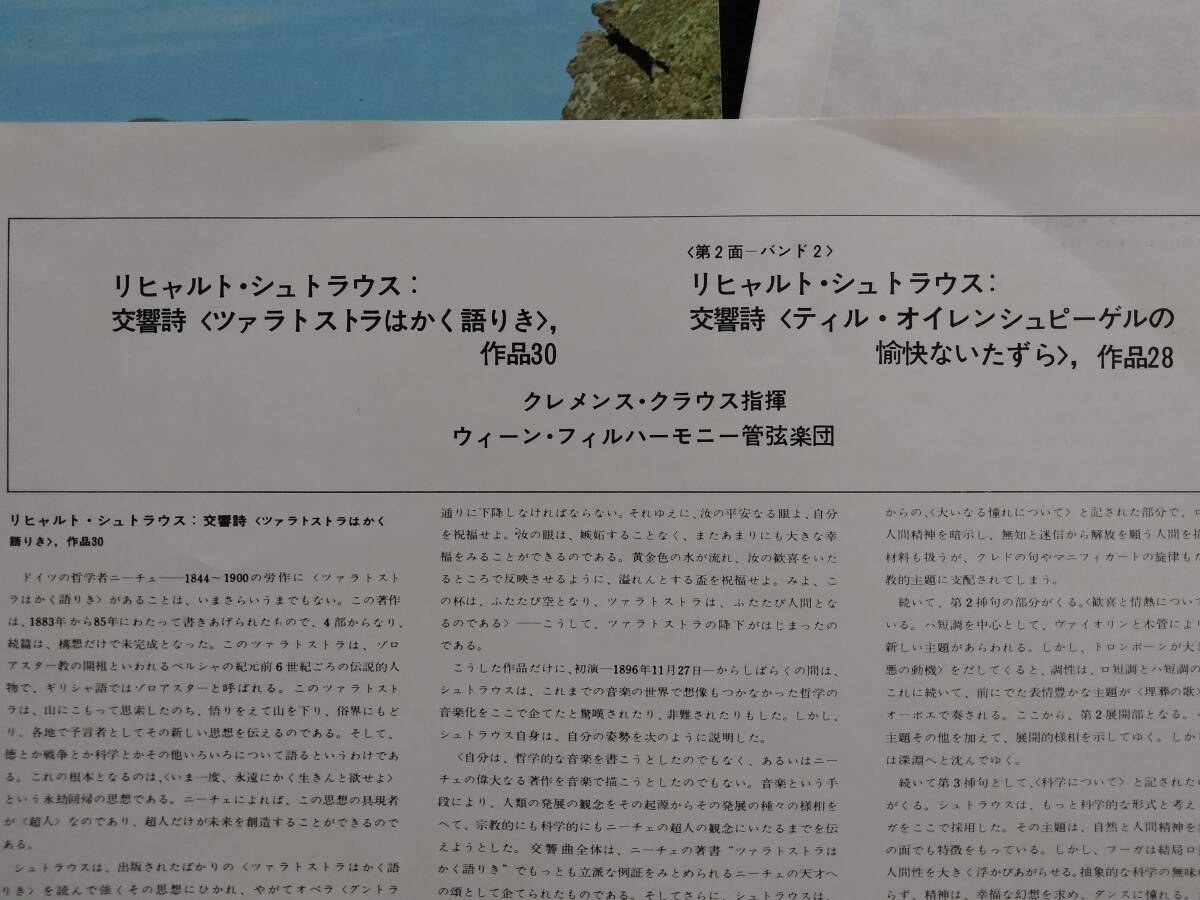 リヒャルト・シュトラウス：
交響詩〈ツァラトストラはかく語りき〉，
作品30
〈第2面―バンド2〉
リヒャルト・シュトラウス：
交響詩〈ティル・オイレンシュピーゲルの
愉快ないたずら〉，作品28
クレメンス・クラウス指揮
ウィーン・フィルハーモニー管弦楽団
リヒャルト・シュトラウス：交響詩〈ツァラトストラはかく
語りき〉，作品30
ドイツの哲学者ニーチェ――1844～1900の労作に〈ツァラトスト
ラはかく語りき〉があることは、いまさらいうまでもない。この著作
は、1883年から85年にわたって書きあげられたもので、4部からなり、
続篇は、構想だけで未完成となった。このツァラトストラは、ゾロ
アスター教の開祖といわれるペルシャの紀元前6世紀ごろの伝説的人
物で、ギリシャ語ではゾロアスターと呼ばれる。このツァラトスト
ラは、山にこもって思索したのち、悟りをえて山を下り、俗界にもど
り、各地で予言者としてその新しい思想を伝えるのである。そして、
徳とか戦争とか科学とかその他いろいろについて語るというわけであ
る。これの根本となるのは、〈いま一度、永遠にかく生きんと欲せよ〉
という永劫回帰の思想である。ニーチェによれば、この思想の具現者
が〈超人〉なのであり、超人だけが未来を創造することができるので
ある。
シュトラウスは、出版されたばかりの〈ツァラトストラはかく語
りき〉を読んで強くその思想にひかれ、やがてオペラ〈グントラ
通りに下降しなければならない。それゆえに、汝の平安なる眼よ、自分
を祝福せよ。汝の眼は、嫉妬することなく、またあまりにも大きな幸
福をみることができるのである。黄金色の水が流れ、汝の歓喜をいた
るところで反映させるように、溢れんとする盃を祝福せよ。みよ、こ
の杯は、ふたたび空となり、ツァラトストラは、ふたたび人間とな
るのである〉――こうして、ツァラトストラの降下がはじまったの
である。
こうした作品だけに、初演―1896年11月27日―からしばらくの間は、
シュトラウスは、これまでの音楽の世界で想像もつかなかった哲学の
音楽化をここで企てたと驚嘆されたり、非難されたりもした。しかし、
シュトラウス自身は、自分の姿勢を次のように説明した。
〈自分は、哲学的な音楽を書こうとしたのでもなく、あるいはニー
チェの偉大なる著作を音楽で描こうとしたのでもない。音楽という手
段により、人類の発展の観念をその起源からその発展の種々の様相を
へて、宗教的にも科学的にもニーチェの超人の観念にいたるまでを伝
えようとした。交響曲全体は、ニーチェの著書“ツァラトストラは
かく語りき”でもっとも立派な例証をみとめられるニーチェの天才へ
の頌として企てられたものである。そしてさらに、シュトラウスは、
からの、〈大いなる憧れについて〉と記された部分で、ロ
人間精神を暗示し、無知と迷信から解放を願う人間を描
材料も扱うが、クレドの句やマニフィカートの旋律もた
教的主題に支配されてしまう。
続いて、第2挿句の部分がくる。〈歓喜と情熱につい
いる。ハ短調を中心として、ヴァイオリンと木管により
新しい主題があらわれる。しかし、トロンボーンが大き
悪の動機〉をだしてくると、調性は、ロ短調とハ短調の
これに続いて、前にでた表情豊かな主題が〈埋葬の歌〉
オーボエで奏される。ここから、第2展開部となる。
主題その他を加えて、展開的様相を示してゆく。しか
は深淵へと沈んでゆく。
続いて第3挿句として、〈科学について〉と記された
がくる。シュトラウスは、もっと科学的な形式と考え
ガをここで採用した。その主題は、自然と人間精神を
の面でも特徴をもっている。しかし、フーガは結局ロ
人間性を大きく浮かびあがらせる。抽象的な科学の無味
らず、精神は、幸福な幻想を求め、ダンスに憧れる。